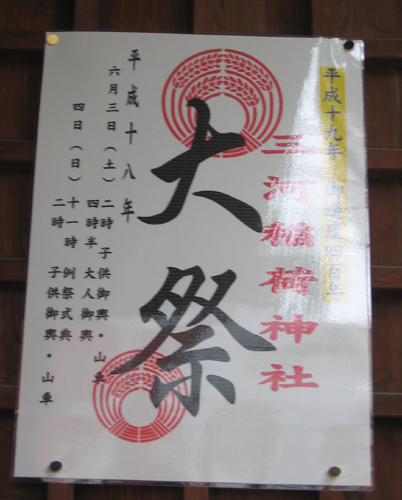 平成十九年 御遷座四百年
三河稲荷神社
大祭
平成十八年
六月三日(土)二時 子供御輿・山車
四時半 大人御輿
四日(日)十一時 例祭式典
二時 子供御輿・山車